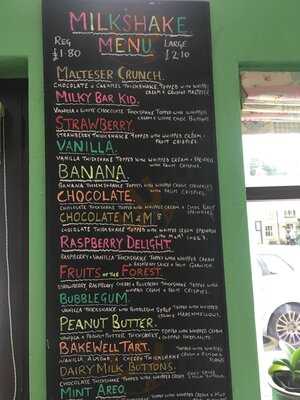 MILKSHAKE
MENU
REG
£1.80
LARGE
£2.10
MALTESER CRUNCH.
CHOCOLATE & CARAMEL THICKSHAKE TOPPED WITH WHIPPED
CREAM & CRUSHED MALTESERS
MILKY BAR KID.
VANILLA & WHITE CHOCOLATE THICKSHAKE TOPPED WITH WHIPPED
CREAM & WHITE CHOC BUTTONS
STRAWBERRY
STRAWBERRY THICKSHAKE TOPPED WITH WHIPPED CREAM &
FRUIT CRISPIES.
VANILLA.
VANILLA THICKSHAKE TOPPED WITH WHIPPED CREAM &
FRUIT CRISPIES.
BANANA.
BANANA THICKSHAKE TOPPED WITH WHIPPED CREAM
FRUIT CRISPIES.
CHOCOLATE.
CHOCOLATE THICKSHAKE TOPPED WITH WHIPPED CREAM & CHOC
SPRINKLES
CHOCOLATE M&M'S
CHOCOLATE THICKSHAKE TOPPED WITH WHIPPED CREAM
WITH M&M'S
RASPBERRY DELIGHT.
RASPBERRY & VANILLA THICKSHAKE TOPPED WITH WHIPPED CREAM
RASPBERRY SAUCE &
FRUITS OF THE FOREST.
STRAWBERRY, RASPBERRY, CHERRY & BLUEBERRY THICKSHAKE TOPPED WITH
WHIPPED CREAM & FRUIT CRISPIES.
BUBBLEGUM.
VANILLA THICKSHAKE WITH BUBBLEGUM SYRUP TOPPED WITH WHIPPED
CREAM & MARSHMALLOWS.
PEANUT BUTTER.
VANILLA & PEANUT BUTTER THICKSHAKE TOPPED WITH WHIPPED CREAM &
CHOPPED
BAKEWELL TART.
VANILLA ALMOND & CHERRY THICKSHAKE TOPPED WITH WHIPPED
CREAM &
DAIRY MILK BUTTONS.
CHOCOLATE THICKSHAKE TOPPED WITH WHIPPED CREAM &
BUTTONS
MINT AREO